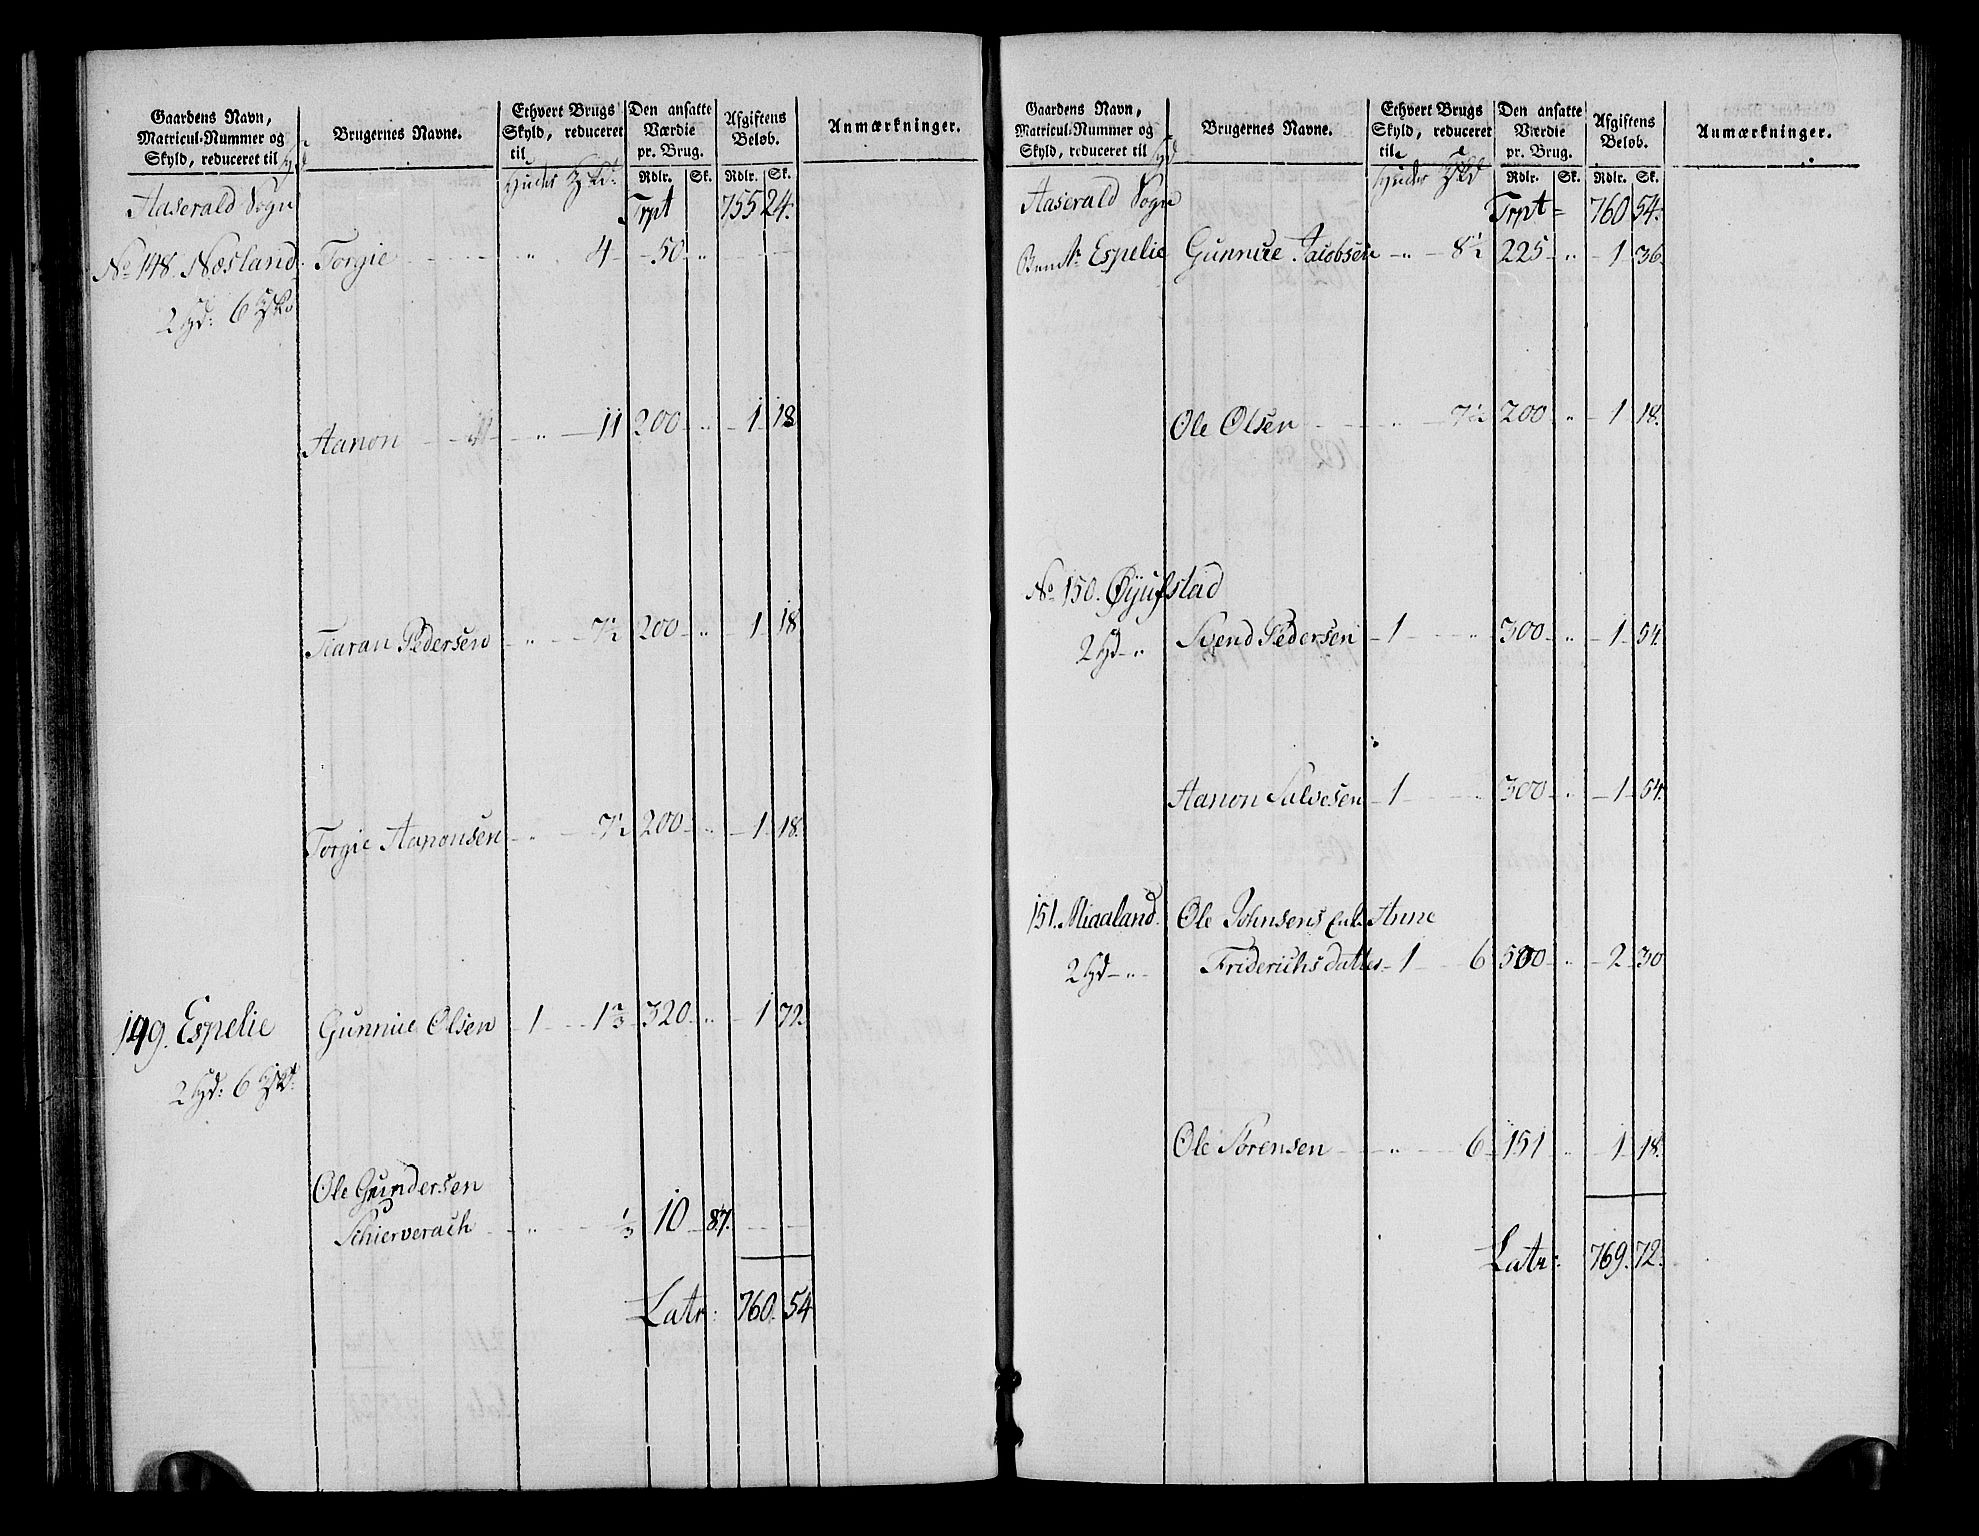 Gaardens Navn, Matricul-Nummer og Skyld, reduceret til
Brugernes Navne.
Ethvert Brugs Skyld, reduceret til
Den ansatte Værdie pr. Brug.
Afgiftens Beløb.
Anmærkninger.
Huder
Rdlr. Sk. Rdlr. Sk.
Aaserald Sogn Trpt 755 24.
No 148. Næsland. Torgie " 4 50 "
2 Hd: 6
Aanon " 11 200 " 1 18
Taran Pedersen " 7½ 200 " 1 18
Torgie Aanonsen " 7½ 200 " 1 18.
149. Espelie Gunnue Olsen 1 1⅔ 320 " 1 72.
2 Hd: 6
Ole Gundersen
Schierverach " ⅓ 10 87.
Latr: 760. 54
Gaardens Navn, Matricul-Nummer og Skyld, reduceret til
Brugernes Navne.
Ethvert Brugs Skyld, reduceret til
Den ansatte Værdie pr. Brug.
Afgiftens Beløb.
Anmærkninger.
Huder
Rdlr. Sk. Rdlr. Sk.
Aaserald Sogn Trpt= 760 54.
Espelie Gunnue Jacobsen " 8½ 225 " 1 36.
Ole Olsen " 7½ 200 " 1 18.
No 150. Øyufstad
2 Hd " Svend Pedersen 1 " 300 " 1 54.
Aanon Salvesen 1 " 300 " 1 54.
151. Miaaland. Ole Johnsens Enke Anne
2 Hd " Friderichsdatter 1 6 500 " 2 30
Ole Sørensen " 6 151 " 1 18.
Latr: 769. 72.